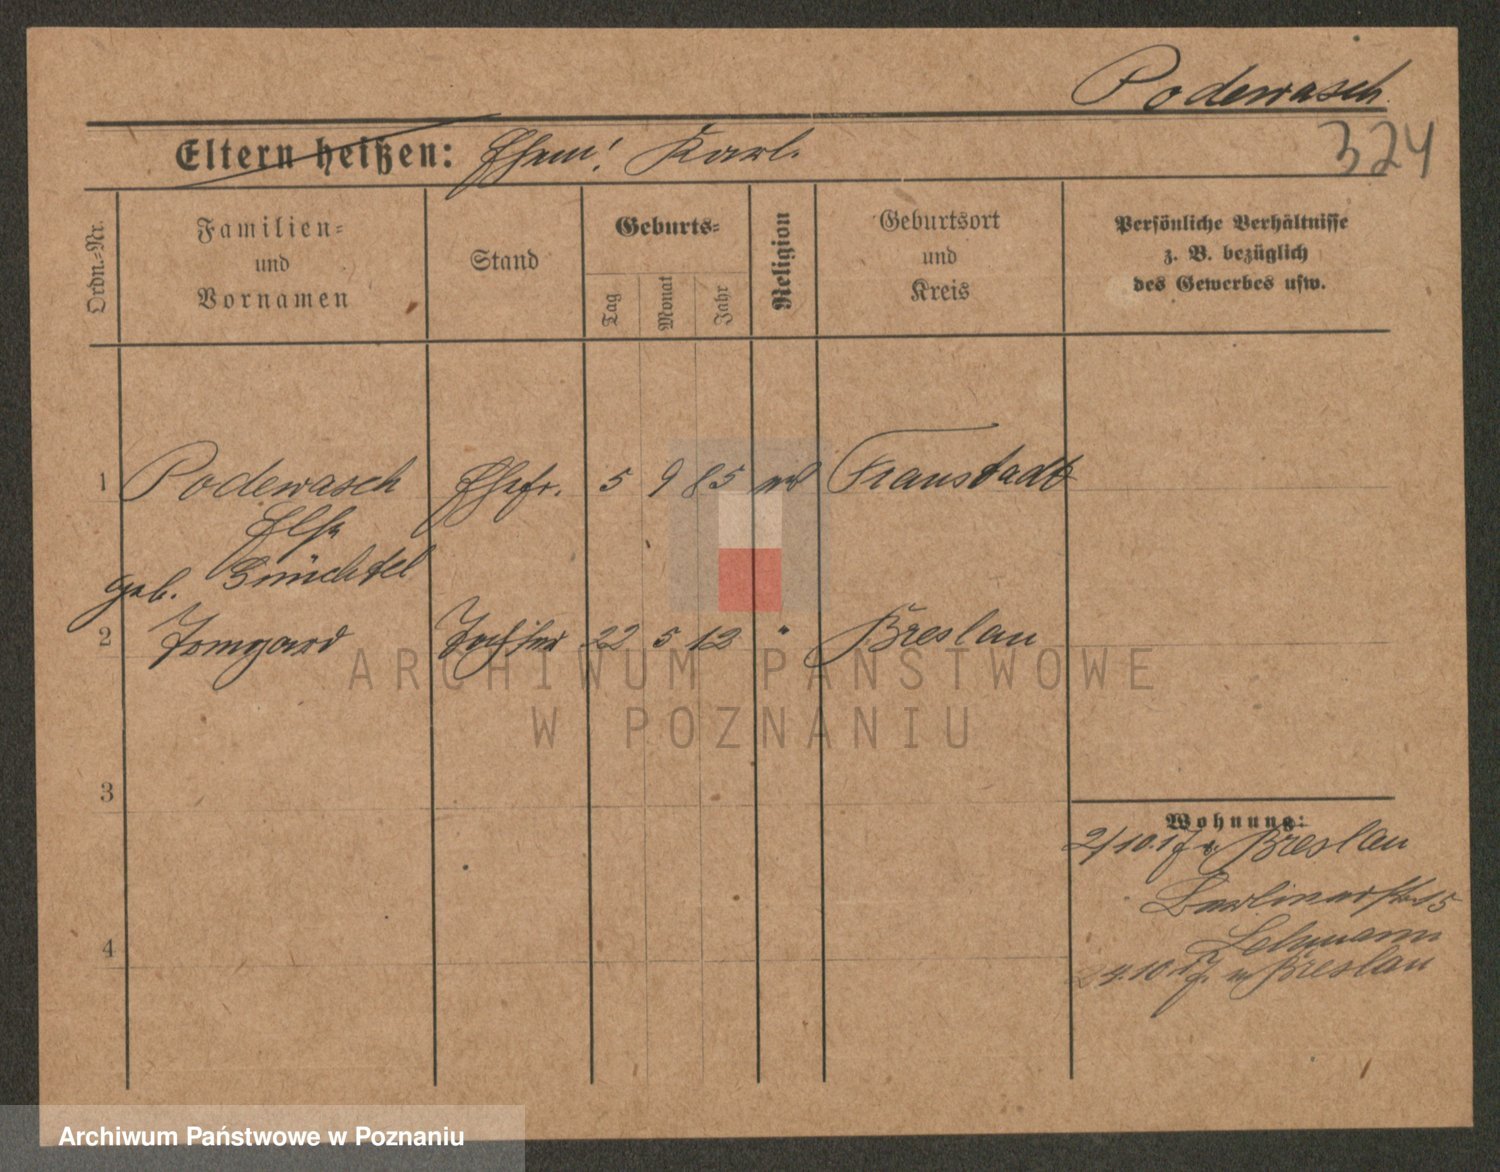 Podewasch
324
Eltern heißen: Ehem! Karl.
Ordn.-Nr.
Familien-
und
Vornamen
Stand
Geburts-
Tag
Monat
Jahr
Religion
Geburtsort
und
Kreis
Persönliche Verhältnisse
z. B. bezüglich
des Gewerbes usw.
1 Podewasch Ehefr. 5 9 85 Fraustadt
Else
geb.
2 Irmgard Tochter 22 5 12 " Breslau
3
4
Wohnung:
2/10.17 v Breslau
Berlinerstr. 15
Lehmann
24.10.17. n Breslau
ARCHIWUM PAŃSTWOWE
W POZNANIU
Archiwum Państwowe w Poznaniu